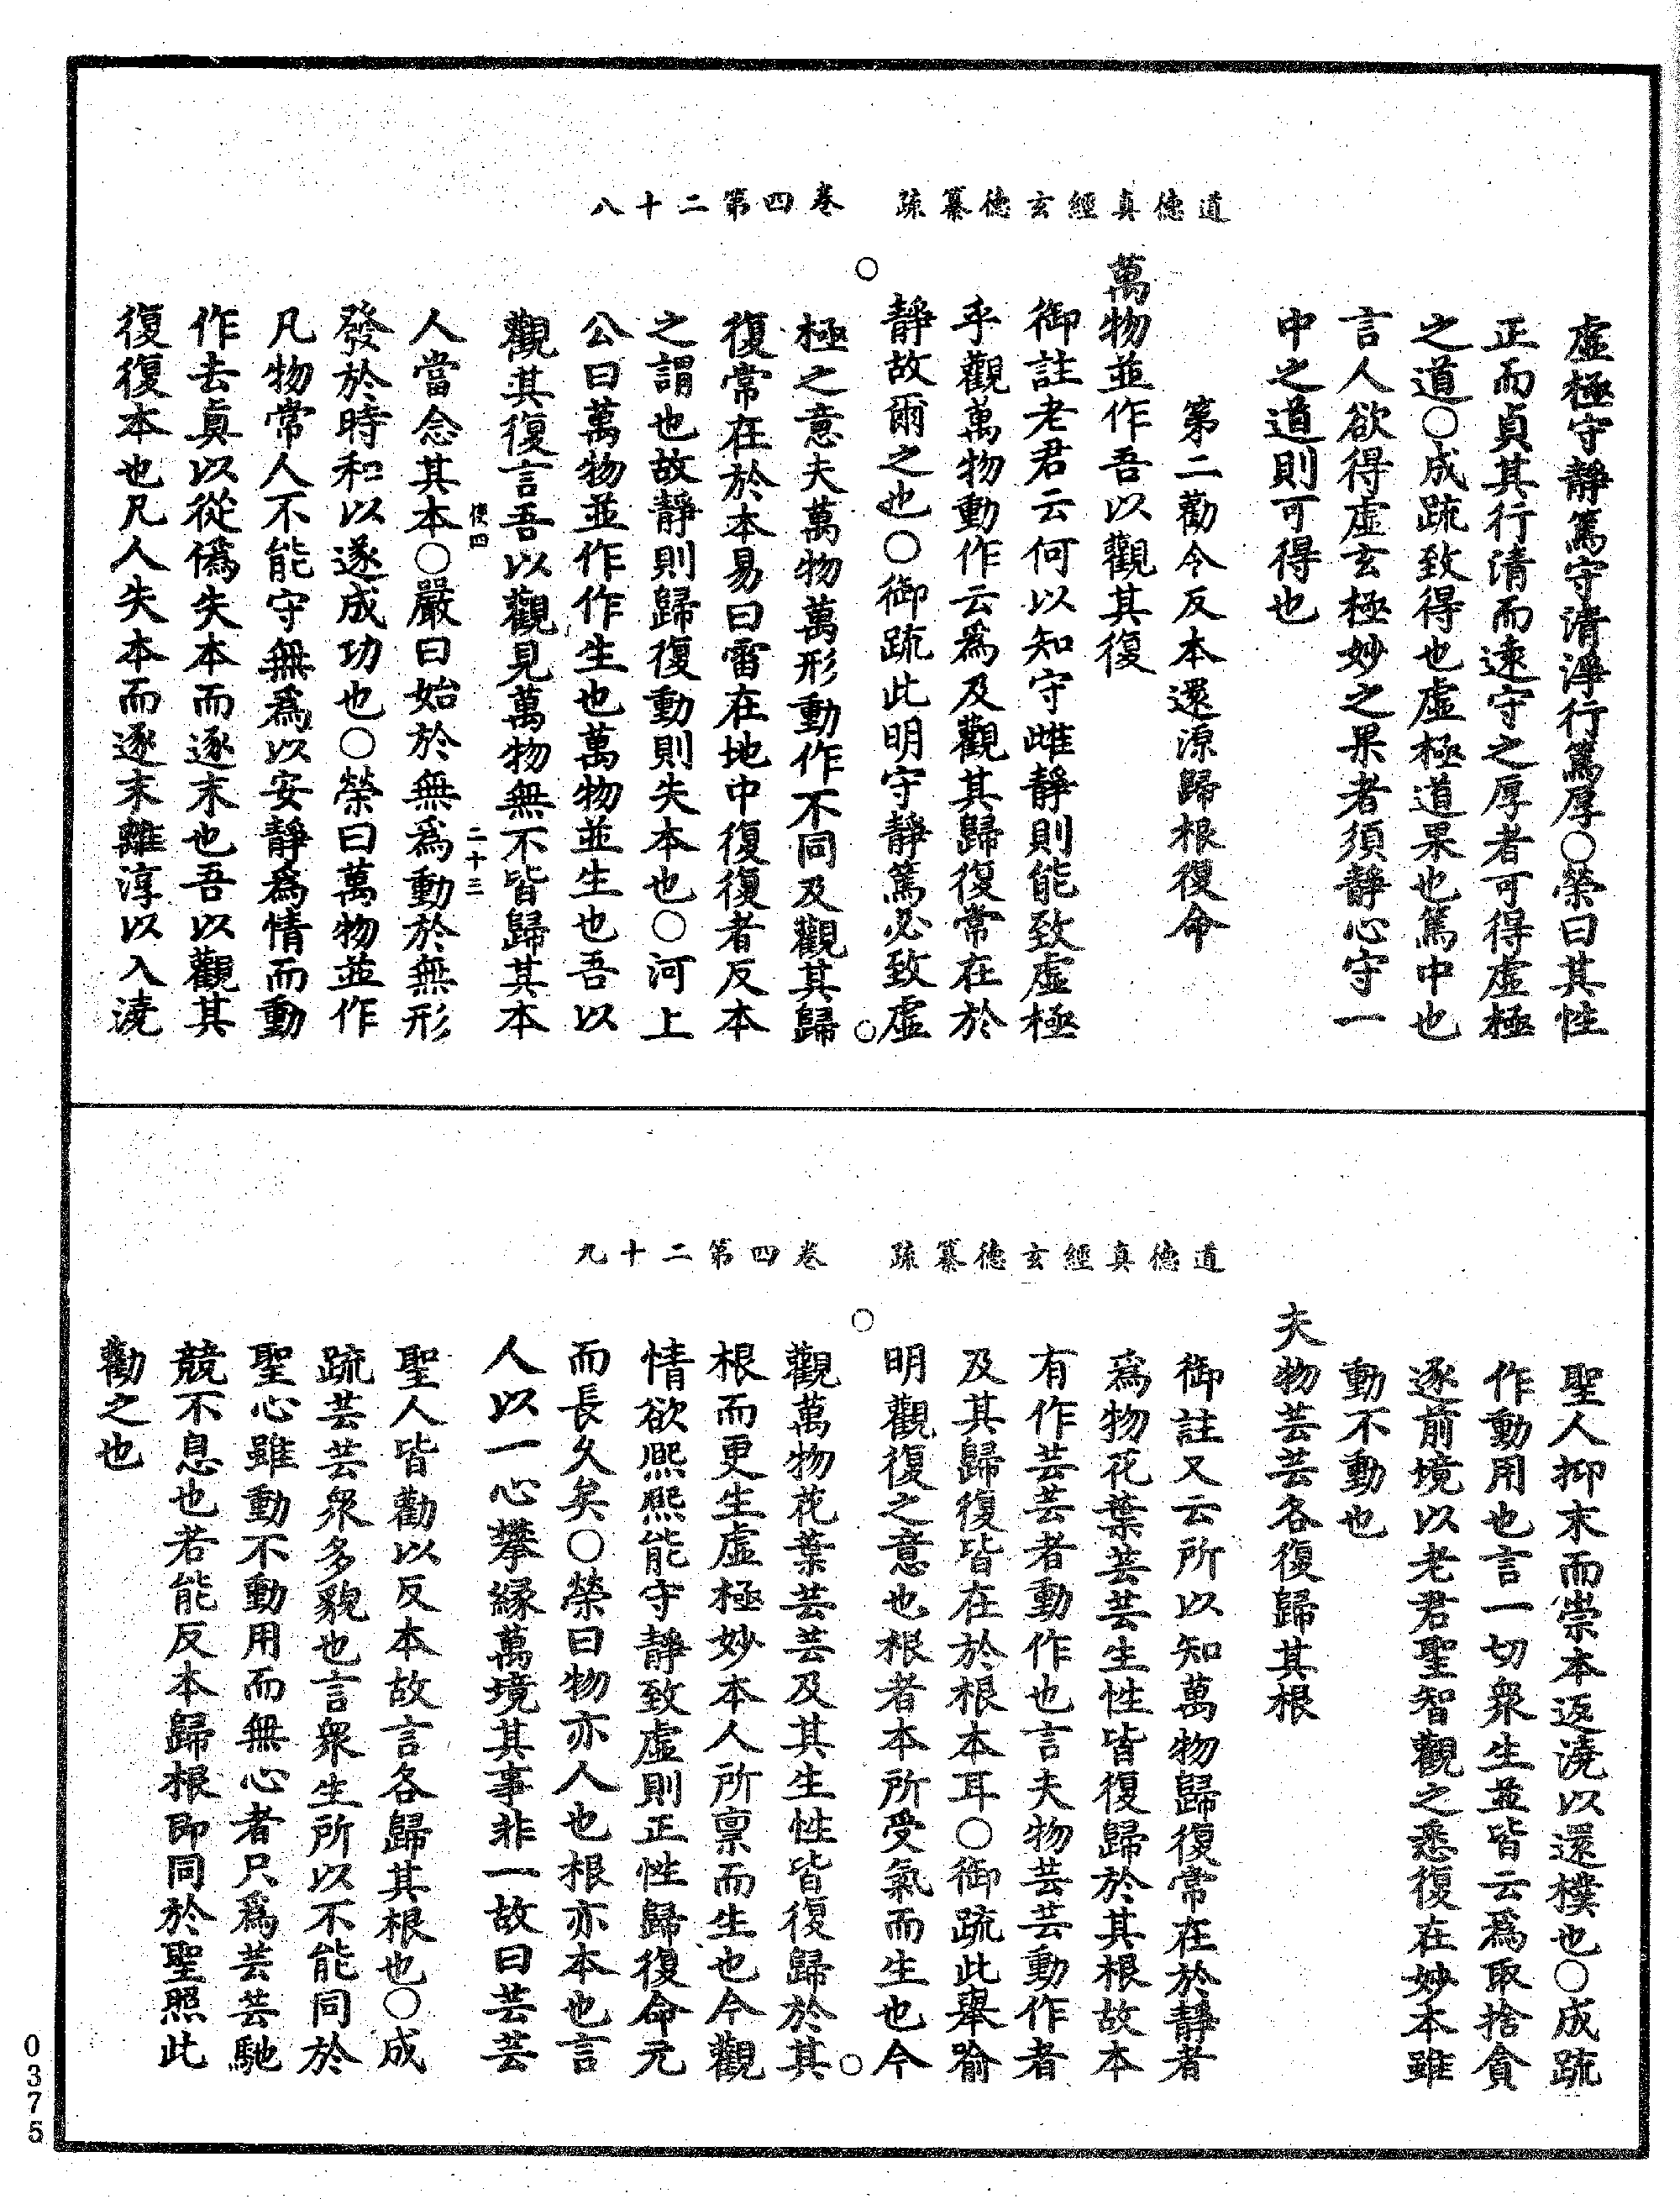 道德真經玄德纂疏　卷四第二十八
虛極守靜篤守清淨行篤厚○榮曰其性
正而貞其行清而遠守之厚者可得虛極
之道○成疏致得也虛極道果也篤中也
言人欲得虛玄極妙之果者須靜心守一
中之道則可得也
第二勸令反本還源歸根復命
萬物並作吾以觀其復
御註老君云何以知守雌靜則能致虛極
乎觀萬物動作云爲及觀其歸復常在於
靜故爾之也○御疏此明守靜篤必致虛
極之意夫萬物萬形動作不同及觀其歸
復常在於本易曰雷在地中復復者反本
之謂也故靜則歸復動則失本也○河上
公曰萬物並作作生也萬物並生也吾以
觀其復言吾以觀見萬物無不皆歸其本
二十三
人當念其本○嚴曰始於無爲動於無形
發於時和以遂成功也○榮曰萬物並作
凡物常人不能守無爲以安靜爲情而動
作去真以從僞失本而逐末也吾以觀其
復復本也凡人失本而逐末離淳以入澆
道德真經玄德纂疏　卷四第二十九
聖人抑末而崇本返澆以還樸也○成疏
作動用也言一切衆生並皆云爲取捨貪
逐前境以老君聖智觀之悉復在妙本雖
動不動也
夫物芸芸各復歸其根
御註又云所以知萬物歸復常在於靜者
爲物花葉芸芸生性皆復歸於其根故本
有作芸芸者動作也言夫物芸芸動作者
及其歸復皆在於根本耳○御疏此舉喻
明觀復之意也根者本所受氣而生也今
觀萬物花葉芸芸及其生性皆復歸於其
根而更生虛極妙本人所禀而生也今觀
情欲熙熙能守靜致虛則正性歸復命元
而長久矣○榮曰物亦人也根亦本也言
人以一心攀緣萬境其事非一故曰芸芸
聖人皆勸以反本故言各歸其根也○成
疏芸芸衆多貌也言衆生所以不能同於
聖心雖動不動用而無心者只爲芸芸馳
競不息也若能反本歸根即同於聖照此
勸之也
0375